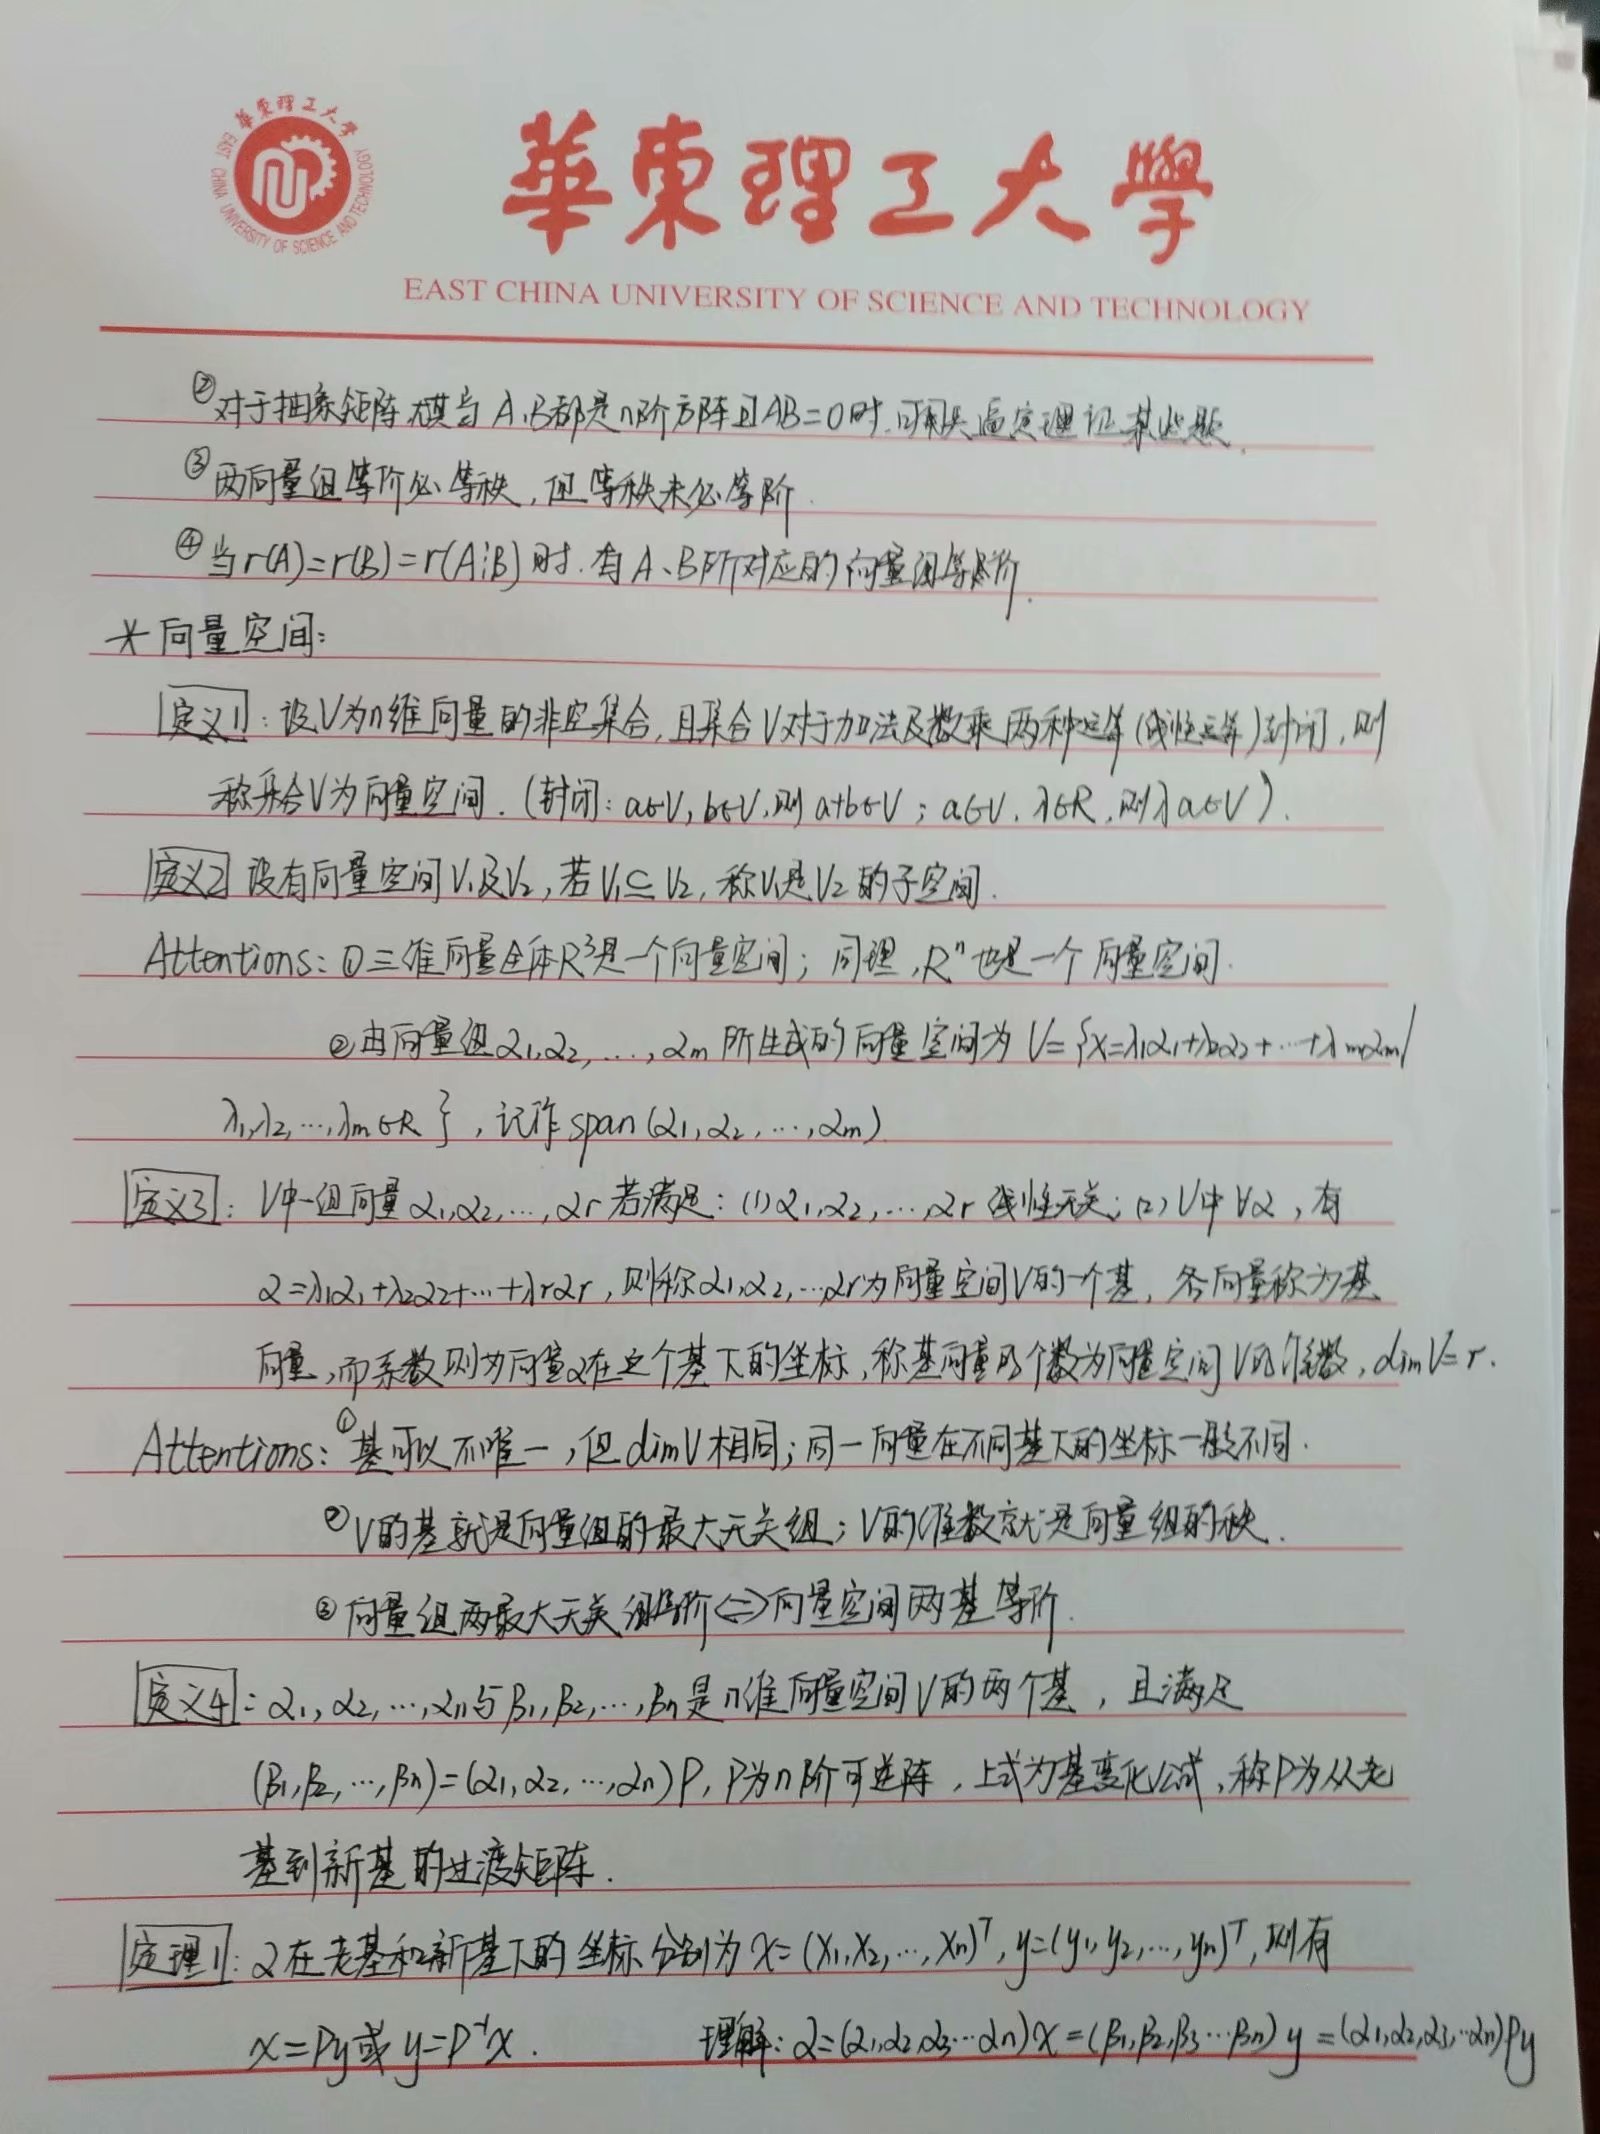 華東理工大学
EAST CHINA UNIVERSITY OF SCIENCE AND TECHNOLOGY
華東理工大學
EAST CHINA UNIVERSITY OF SCIENCE AND TECHNOLOGY
②对于抽象矩阵,尤其当A、B都是n阶方阵且AB=0时,可用夹逼定理证某些题.
③两向量组等价必等秩,但等秩未必等阶.
④当r(A)=r(B)=r(A¦B)时,有A、B所对应的向量组等阶.
*向量空间:
定义1:设V为n维向量的非空集合,且集合V对于加法及数乘两种运算(线性运算)封闭,则
称集合V为向量空间.(封闭:a∈V,b∈V,则a+b∈V;a∈V,λ∈R,则λa∈V).
定义2 设有向量空间V₁及V₂,若V₁⊆V₂,称V₁是V₂的子空间.
Attentions:①三维向量全体R³是一个向量空间;同理,Rⁿ也是一个向量空间.
②由向量组α1,α2,…,αm所生成的向量空间为V={x=λ1α1+λ2α2+…+λmαm|
λ1,λ2,…,λm∈R},记作span(α1,α2,…,αm)
定义3:V中一组向量α1,α2,…,αr若满足:(1)α1,α2,…,αr线性无关;(2)V中∀α,有
α=λ1α1+λ2α2+…+λrαr,则称α1,α2,…,αr为向量空间V的一个基,各向量称为基
向量,而系数则为向量α在这个基下的坐标,称基向量的个数为向量空间V的维数,dimV=r.
Attentions:①基可以不唯一,但dimV相同;同一向量在不同基下的坐标一般不同.
②V的基就是向量组的最大无关组;V的维数就是向量组的秩.
③向量组两最大无关组等阶⇔向量空间两基等阶.
定义4:α1,α2,…,αn与β1,β2,…,βn是n维向量空间V的两个基,且满足
(β1,β2,…,βn)=(α1,α2,…,αn)P,P为n阶可逆阵,上式为基变化公式,称P为从老
基到新基的过渡矩阵.
定理1:α在老基和新基下的坐标分别为x=(x1,x2,…,xn)ᵀ,y=(y1,y2,…,yn)ᵀ,则有
x=Py或y=P⁻¹x. 理解:α=(α1,α2,α3…αn)x=(β1,β2,β3…βn)y=(α1,α2,α3,…αn)Py